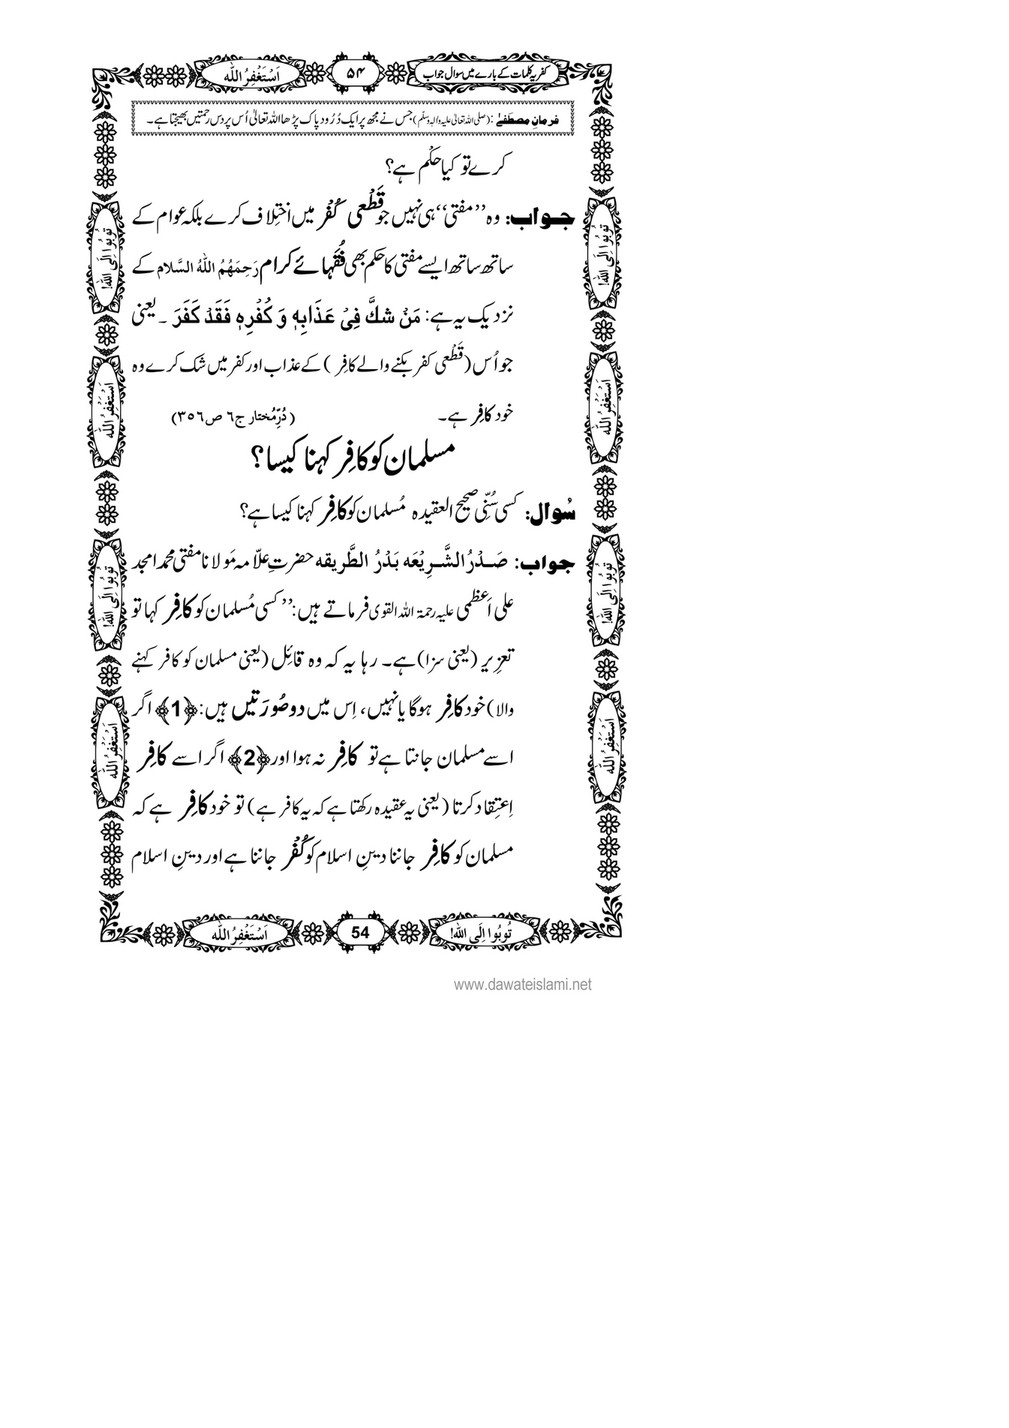 کفریہ کلمات کے بارے میں سوال جواب ۵۴ اَسْتَغْفِرُ اللّٰه
فرمانِ مصطفےٰ : (صلی اللہ تعالیٰ علیہ والہٖ وسلّم) جس نے مجھ پر ایک دُرُود پاک پڑھا اللہ تعالیٰ اُس پر دس رحمتیں بھیجتا ہے۔
کرے تو کیا حکْم ہے؟
جواب: وہ ’’مفتی‘‘ ہی نہیں جو قَطْعی کُفْر میں اختِلاف کرے بلکہ عوام کے
ساتھ ساتھ ایسے مفتی کا حکم بھی فُقَہائے کرام رَحِمَهُمُ اللّٰهُ السَّلام کے
نزدیک یہ ہے: مَنْ شَكَّ فِیْ عَذَابِهٖ وَ کُفْرِهٖ فَقَدْ کَفَرَ ۔ یعنی
جو اُس (قَطْعی کفر بکنے والے کافِر ) کے عذاب اور کفر میں شک کرے وہ
خود کافِر ہے۔ (دُرِّمُختار ج٦ ص٣٥٦)
مسلمان کو کافِر کہنا کیسا؟
سُوال: کسی سُنّی صحیحُ العقیدہ مُسلمان کو کافِر کہنا کیسا ہے؟
جواب: صَدْرُ الشَّرِیْعَه بَدْرُ الطَّریقه حضرتِ علّامہ مَولانا مفتی محمد امجد
علی اَعظمی علیہ رحمۃ اللہ القوی فرماتے ہیں: ’’کسی مُسلمان کو کافِر کہا تو
تعزِیر (یعنی سزا) ہے۔ رہا یہ کہ وہ قائِل (یعنی مسلمان کو کافر کہنے
والا) خود کافِر ہوگا یا نہیں، اِس میں دو صُورَتیں ہیں: ﴿1﴾ اگر
اسے مسلمان جانتا ہے تو کافِر نہ ہوا اور ﴿2﴾ اگر اسے کافِر
اِعتِقاد کرتا (یعنی یہ عقیدہ رکھتا ہے کہ یہ کافر ہے) تو خود کافِر ہے کہ
مسلمان کو کافِر جاننا دینِ اسلام کو کُفْر جاننا ہے اور دینِ اسلام
تُوبُوا اِلَی اللّٰه!
اَسْتَغْفِرُ اللّٰه
تُوبُوا اِلَی اللّٰه!
اَسْتَغْفِرُ اللّٰه
تُوبُوا اِلَی اللّٰه!
اَسْتَغْفِرُ اللّٰه
تُوبُوا اِلَی اللّٰه!
اَسْتَغْفِرُ اللّٰه
تُوبُوا اِلَی اللّٰه! 54 اَسْتَغْفِرُ اللّٰه
www.dawateislami.net